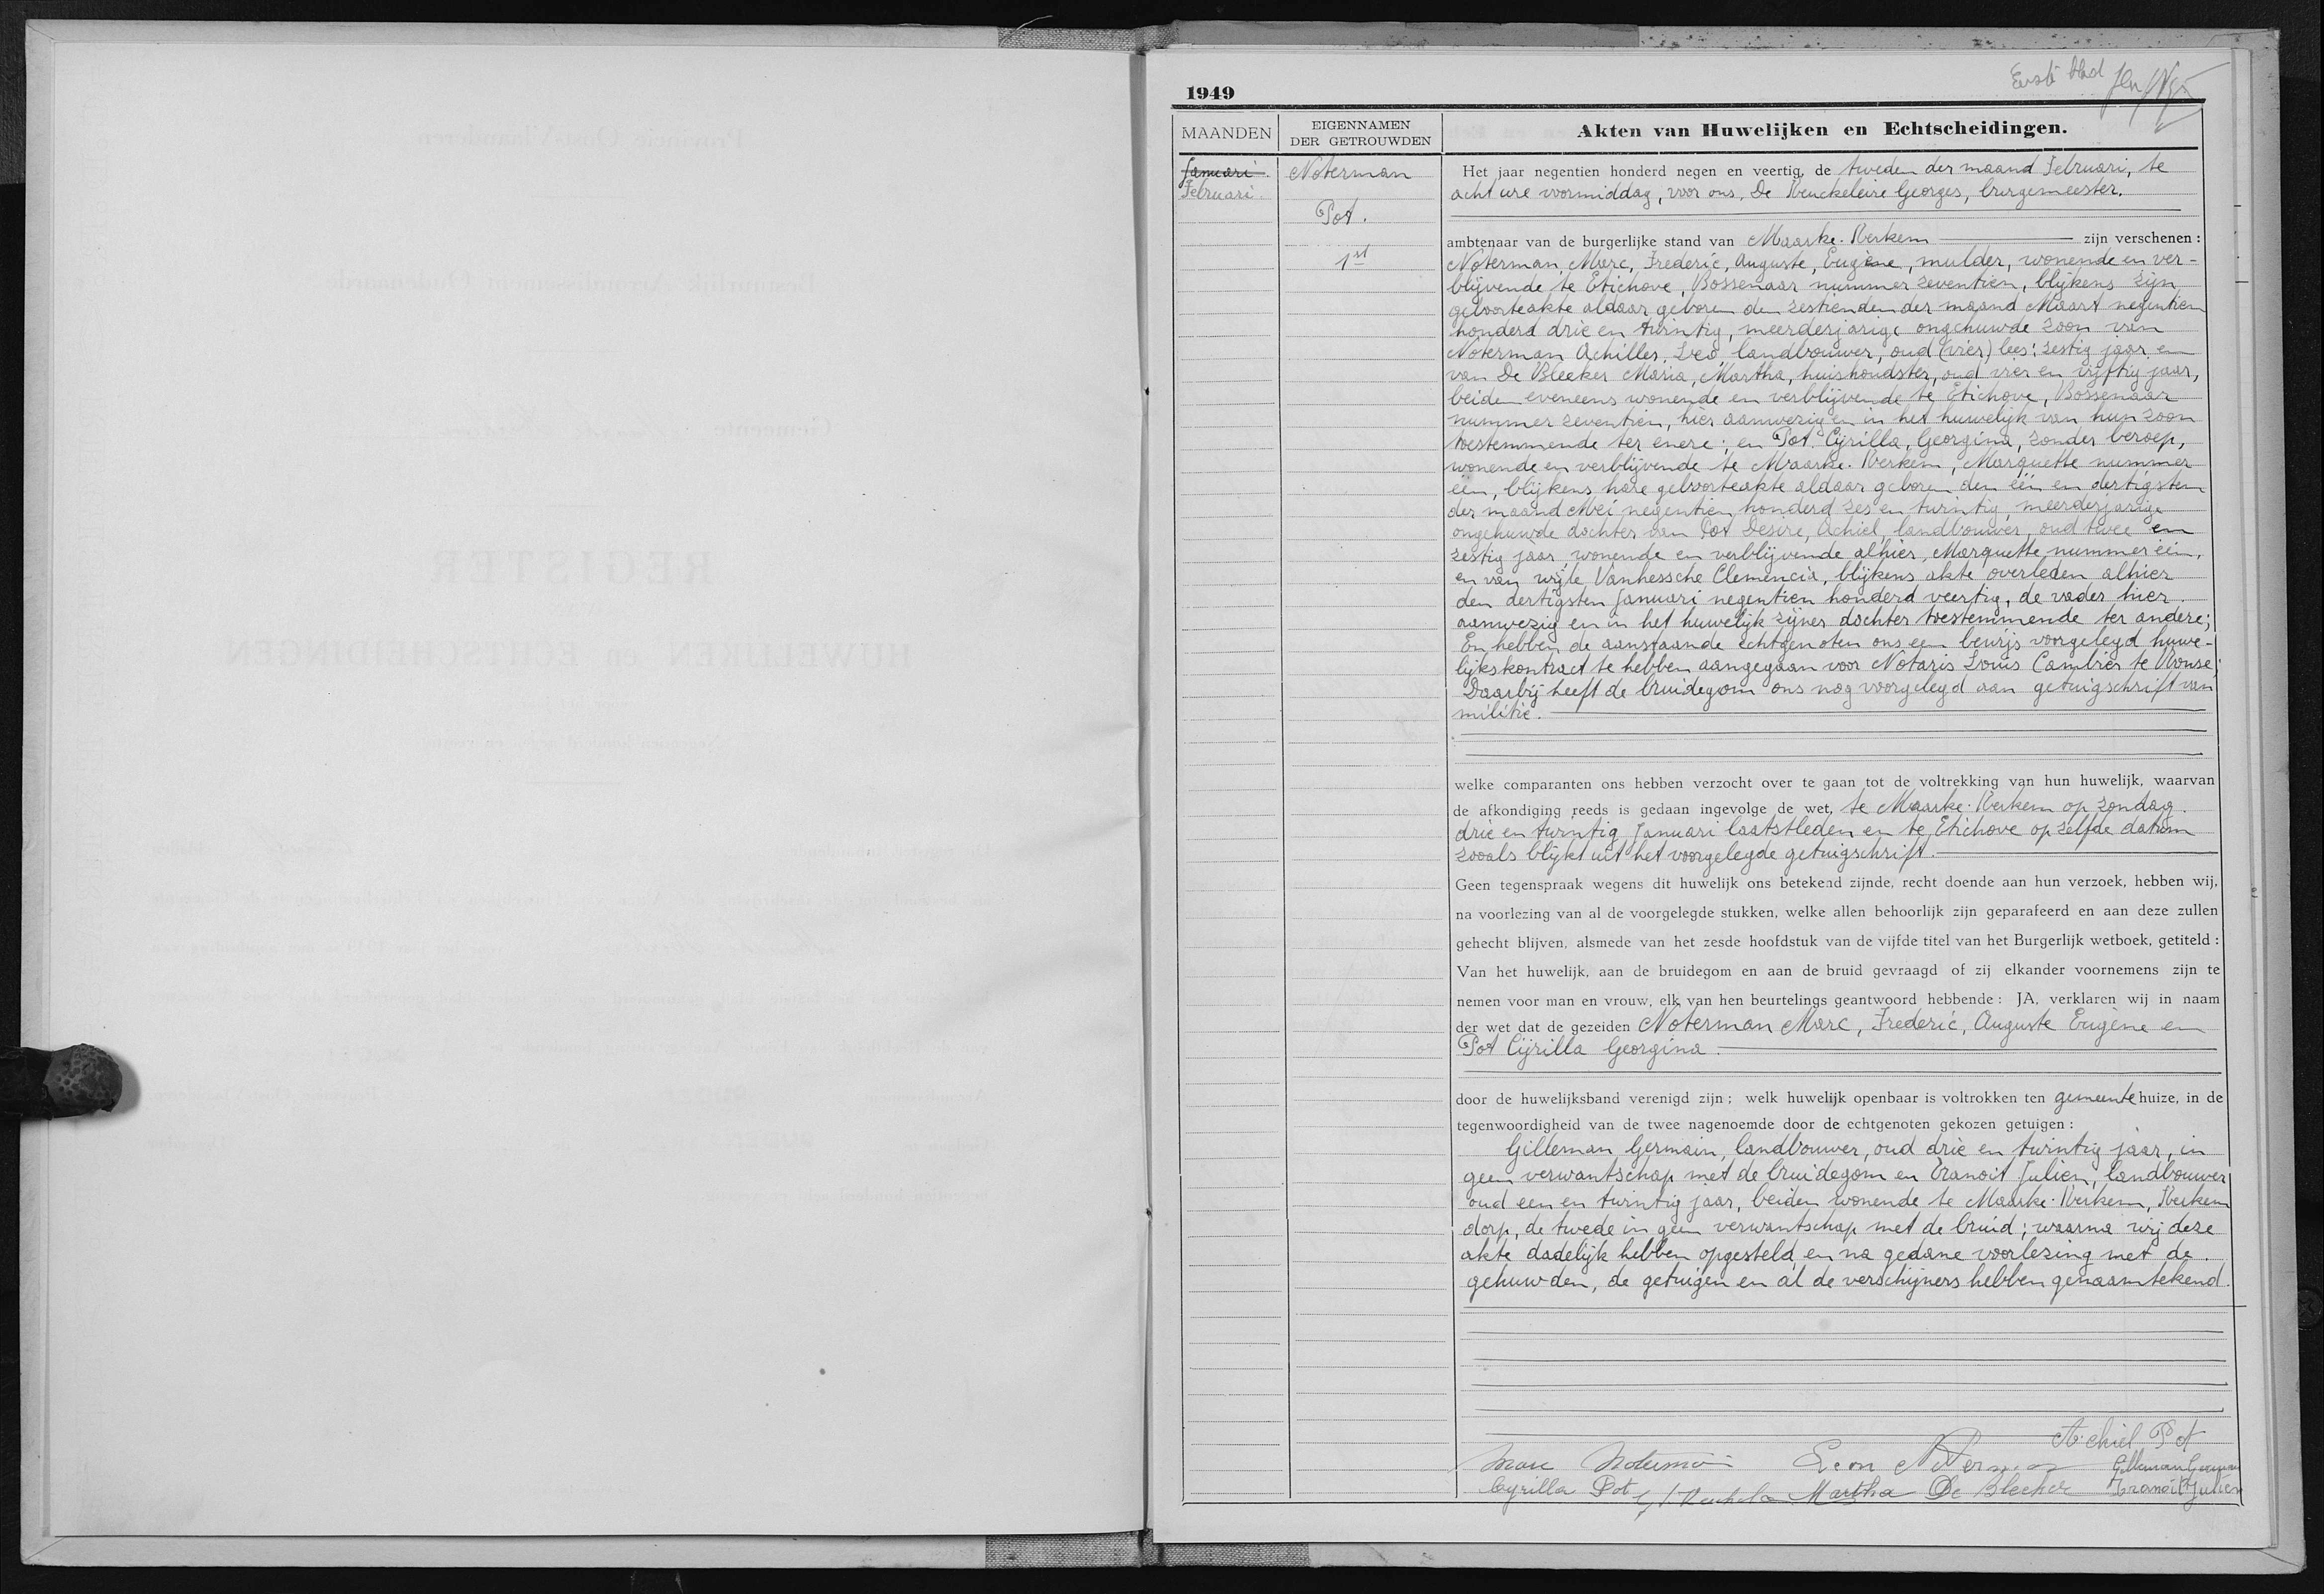 Eerste blad
1949
MAANDEN
EIGENNAMEN
DER GETROUWDEN
Akten van Huwelijken en Echtscheidingen.
Januari
Februari.
Noterman
Pot.
1st
Het jaar negentien honderd negen en veertig, de tweeden der maand Februari, te
acht ure voormiddag, voor ons, De Keuckeleire Georges, burgemeester.
ambtenaar van de burgerlijke stand van Maarke-Kerkem zijn verschenen :
Noterman, Marc, Frederic, Auguste, Eugène, mulder, wonende en ver-
blijvende te Etichove, Bossenaar nummer zeventien, blijkens zijn
geboorteakte aldaar geboren den zestienden der maand Maart negentien
honderd drie en twintig, meerderjarige ongehuwde zoon van
Noterman Achilles, Leo, landbouwer, oud (vier) lees: zestig jaar en
van De Bleeker Maria, Martha, huishoudster, oud vier en vijftig jaar,
beiden eveneens wonende en verblijvende te Etichove, Bossenaar
nummer zeventien, hier aanwezig en in het huwelijk van hun zoon
toestemmende ter enere; en Pot Cyrilla, Georgina, zonder beroep,
wonende en verblijvende te Maarke-Kerkem, Marquette nummer
één, blijkens hare geboorteakte aldaar geboren den één en dertigsten
der maand Mei negentien honderd zes en twintig, meerderjarige
ongehuwde dochter van Pot Desire, Achiel, landbouwer, oud twee en
zestig jaar, wonende en verblijvende alhier, Marquette nummer één,
en van wijle Vanhessche Clemencia, blijkens akte overleden alhier
den dertigsten Januari negentien honderd veertig, de vader hier
aanwezig en in het huwelijk zijner dochter toestemmende ter andere;
En hebben de aanstaande echtgenoten ons een bewijs voorgelegd huwe-
lijkskontract te hebben aangegaan voor Notaris Louis Cambier te Ronse;
Daarbij heeft de bruidegom ons nog voorgelegd aan getuigschrift van
militie.
welke comparanten ons hebben verzocht over te gaan tot de voltrekking van hun huwelijk, waarvan
de afkondiging reeds is gedaan ingevolge de wet, te Maarke-Kerkem op zondag
drie en twintig Januari laatstleden en te Etichove op zelfde datum
zooals blijkt uit het voorgelegde getuigschrift.
Geen tegenspraak wegens dit huwelijk ons betekend zijnde, recht doende aan hun verzoek, hebben wij,
na voorlezing van al de voorgelegde stukken, welke allen behoorlijk zijn geparafeerd en aan deze zullen
gehecht blijven, alsmede van het zesde hoofdstuk van de vijfde titel van het Burgerlijk wetboek, getiteld :
Van het huwelijk, aan de bruidegom en aan de bruid gevraagd of zij elkander voornemens zijn te
nemen voor man en vrouw, elk van hen beurtelings geantwoord hebbende : JA, verklaren wij in naam
der wet dat de gezeiden Noterman Marc, Frederic, Auguste Eugène en
Pot Cyrilla Georgina.
door de huwelijksband verenigd zijn ; welk huwelijk openbaar is voltrokken ten gemeentehuize, in de
tegenwoordigheid van de twee nagenoemde door de echtgenoten gekozen getuigen :
Gilleman Germain, landbouwer, oud drie en twintig jaar, in
geen verwantschap met de bruidegom en Tranoit Julien, landbouwer
oud een en twintig jaar, beiden wonende te Maarke-Kerkem, Kerkem
dorp, de twede in geen verwantschap met de bruid; waarna wij deze
akte dadelijk hebben opgesteld en na gedane voorlezing met de
gehuwden, de getuigen en al de verschijners hebben genaamtekend.
Achiel Pot
Marc Noterman Leon Noterman Gilleman Germain
Cyrilla Pot Martha De Bleeker Tranoit Julien